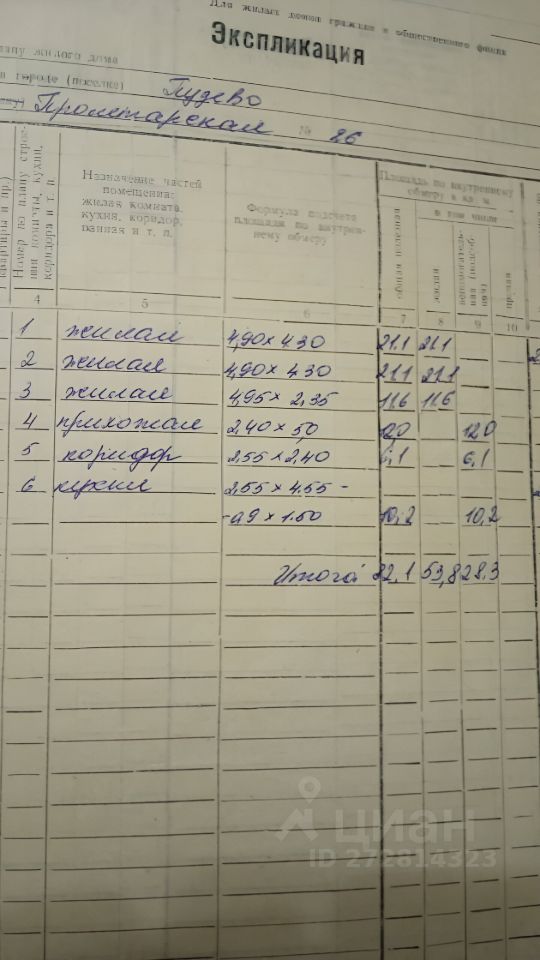 Для жилых домов граждан и общественного фонда
Экспликация
плану жилого дома
в городе (поселке) Пудево
Пролетарская № 26
квартиры и пр.)
Номер по плану строения комнаты, кухни, коридора и т. п.
Назначение частей
помещения:
жилая комната,
кухня, коридор,
ванная и т. п.
Формула подсчета
площади по внутрен-
нему обмеру
Площадь по внутреннему
обмеру в кв. м.
в том числе
общая полезная
жилая
вспомогатель-
ная (подсоб-
ная)
4 5 6 7 8 9 10
1 жилая 4,90 x 4.30 21.1 21.1
2 жилая 4,90 x 4,30 21.1 21.1
3 жилая 4,95 x 2,35 11.6 11.6
4 прихожая 2,40 x 5,0 12.0 12.0
5 коридор 2,55 x 2,40 6,1 6,1
6 кухня 2,55 x 4,55 -
- 0.9 x 1.50 10,2 10,2
Итого: 82,1 53,8 28.3
циан
ID 272814323